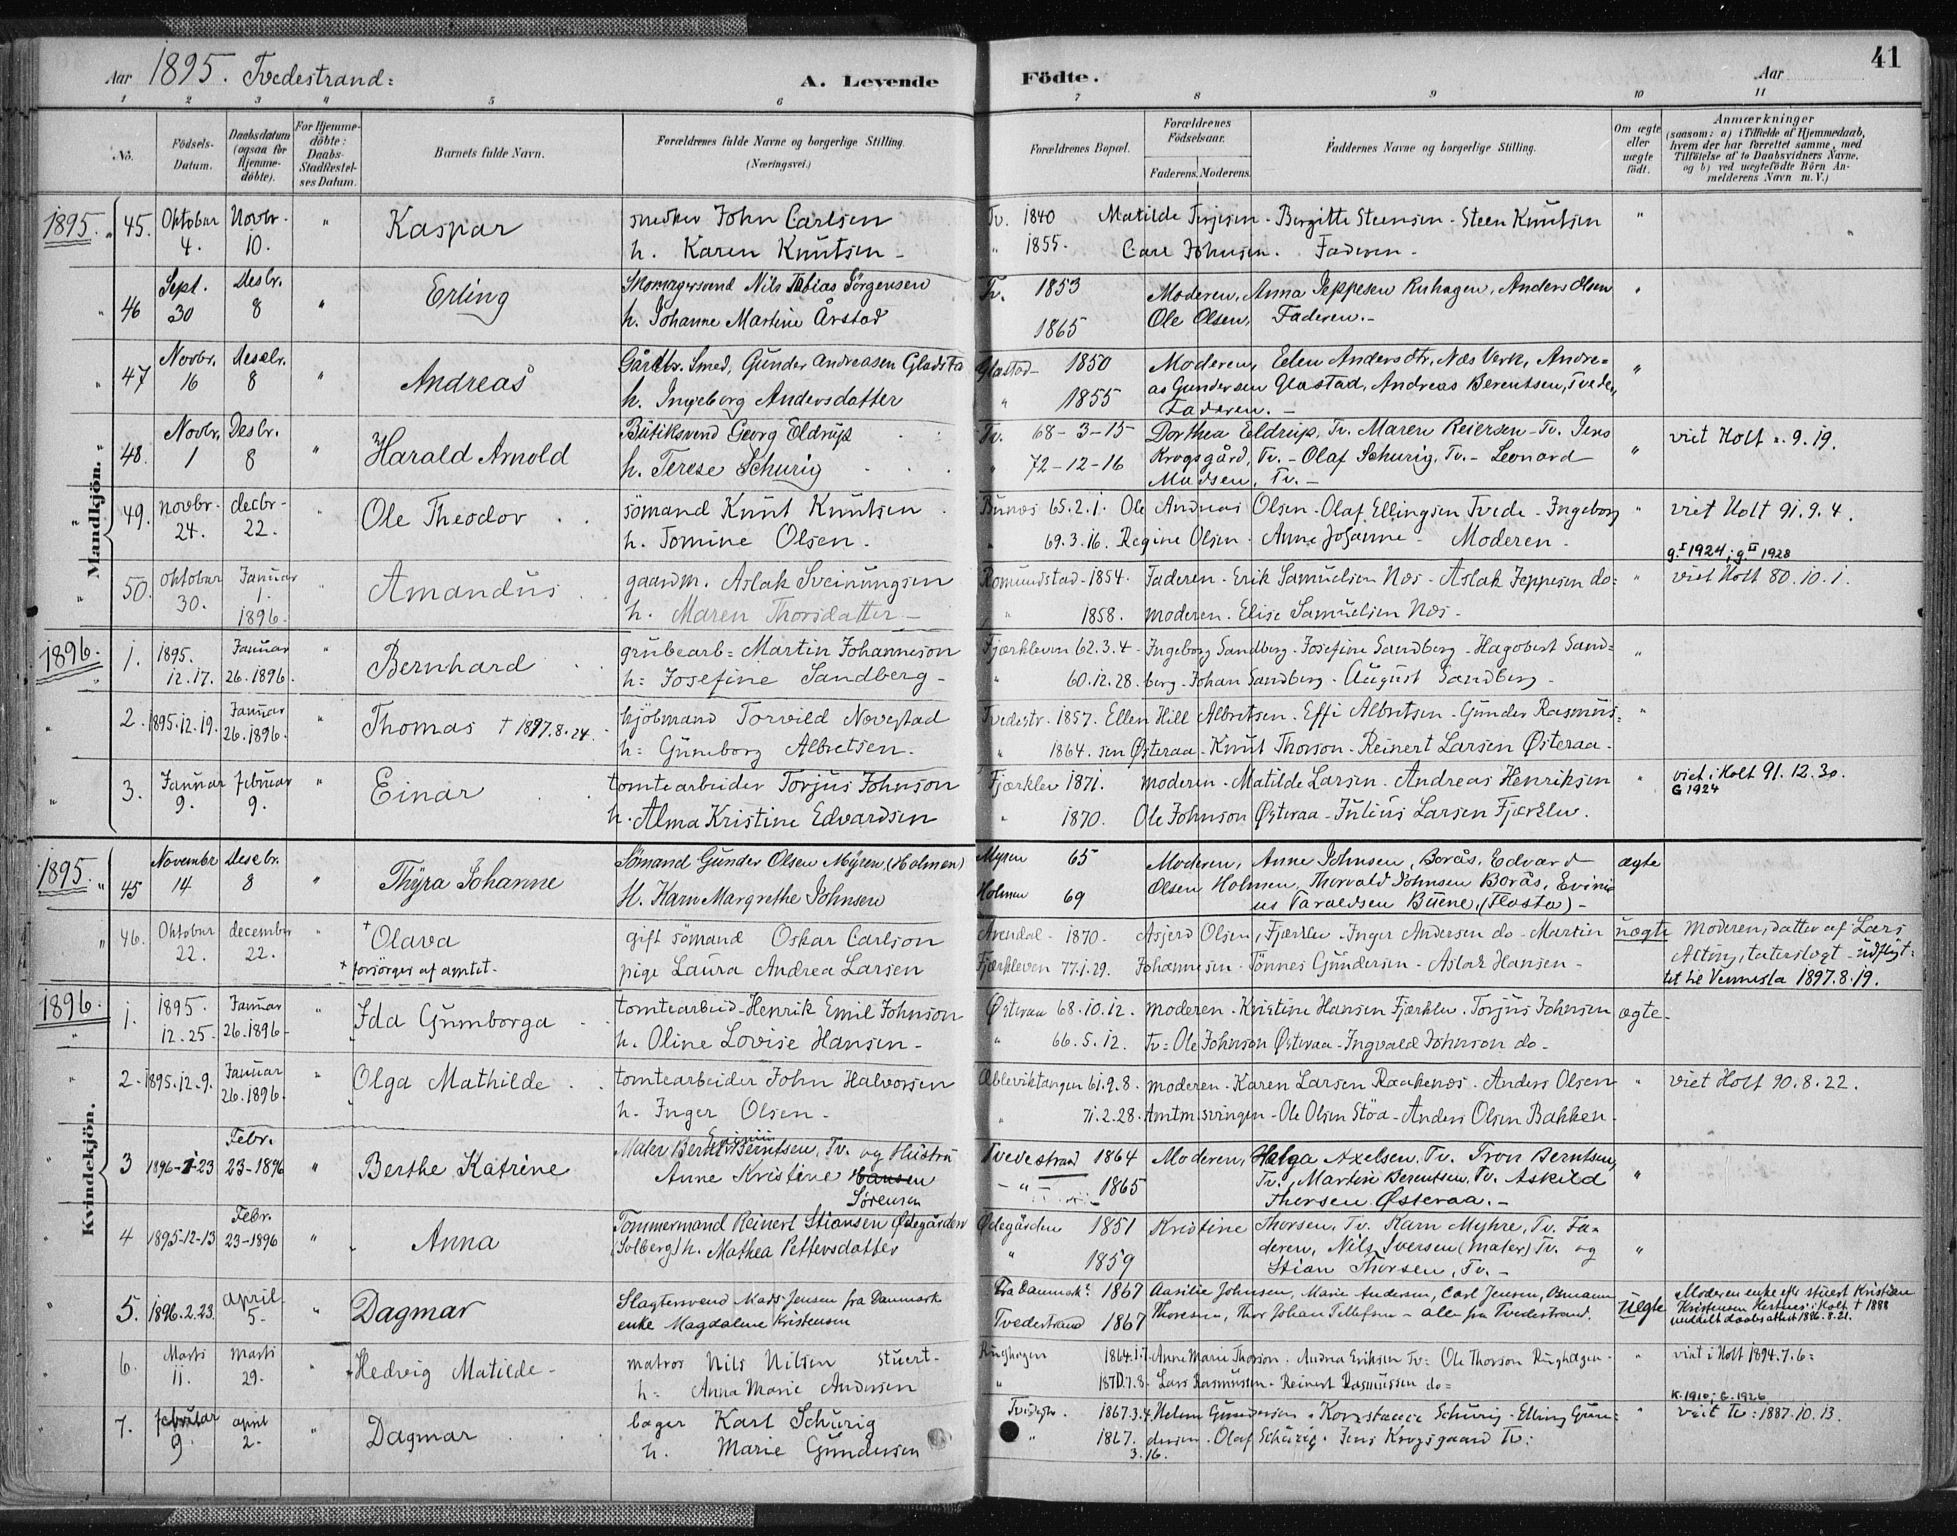 41
Aar 1895. Tvedestrand: A. Levende Födte. Aar
1 2 3 4 5 6 7 8 9 10 11
No. Födsels-Datum. Daabsdatum (ogsaa for Hjemme-döbte). For Hjemme-döbte: Daabs-Stadfæstel-ses Datum. Barnets fulde Navn. Forældrenes fulde Navne og borgerlige Stilling. (Næringsvei.) Forældrenes Bopæl. Forældrenes Födselsaar. Faderens. Moderens. Faddernes Navne og borgerlige Stilling. Om ægte eller uægte födt. Anmærkninger (saasom: a) i Tilfælde af Hjemmedaab, hvem der har forrettet samme, med Tilföielse af to Daabsvidners Navne, og b) ved uægtefödte Börn An-melderens Navn m. V.)
Mandkjön.
1895. " 45. Oktober Novbr. " Kaspar snedker John Carlsen Tv. 1840 Matilde Terjesen - Bergitte Steensen - Steen Knutsen "
4. 10. h. Karen Knutsen - " 1855. Carl Johnsen. Faderen -
" 46 Sept. Desbr. " Erling Skomagersvend Nils Tobias Jörgensen Tv. 1853 Moderen, Anna Jeppesen Ruhagen, Anders Olsen "
30 8 h. Johanne Martine Årstad 1865 Ole Olsen, Faderen. -
" 47 Novbr. Desebr. " Andreas Gårdbr. Smed, Gunder Andreasen Gladsta Glastad 1850 Moderen, Eden Andersdtr, Næs Verk, Andre= "
16 8 h. Ingeborg Andersdatter " 1855 as Gundersen Glastad, Andreas Berentsen, Tvede,
Faderen. -
" 48. Novbr. Desbr. " Harald Arnold Butiksvend Georg Eldrup Tv. 68-3-15 Dorthea Eldrup, Tv. Maren Reiersen - Tv. Jens " viet Holt 9.19.
1 8 h. Terese Schurig " 72-12-16 Krogsgård, Tv. - Olaf Schurig, Tv. - Leonard
Madsen, Tv. -
" 49. novbr. decbr - Ole Theodor sömand Knut Knutsen Bunæs 65.2.1. Ole Andreas Olsen - Olaf Ellingsen Tvede - Ingeborg " viet Holt 91.9.4.
24. 22. h. Tomine Olsen. " 69.3.16. Regine Olsen - Anne Johanne - Moderen - g. I 1924; g II 1928
" 50. oktober Januar " Amandus gaardm. Aslak Sveinungsen Romundstad - 1854. Faderen - Erik Samuelsen Næs - Aslak Jeppesen do - " viet Holt 80.10.1.
30. 1. 1896. h. Maren Thorsdatter - " 1858. moderen - Elise Samuelsen Næs -
1896. " 1. 1895. Januar " Bernhard grubearb= Martin Johanneson Fjærkleven 62.3.4 - Ingeborg Sandberg - Josefine Sandberg - Hagobert Sand= "
12.17. 26.1896. h= Josefine Sandberg - " 60.12.28. berg - Johan Sandberg - August Sandberg -
" 2. 1895.12.19. Januar " Thomas † 1897.8.24. kjöbmand Torvild Novestad Tvedestr. 1857. Ellen Hill Albretsen - Effi Albretsen - Gunder Rasmus= "
26.1896. h= Gunneborg Albretsen. " 1864. sen Østeraa - Knut Thorson - Reinert Larsen Østeraa -
" 3. Januar februar " Einar tomtearbeider Torjus Johnson Fjærklev 1871. moderen - Matilde Larsen - Andreas Henriksen " viet i Holt 91.12.30.
9. 9. h. Alma Kristine Edvardsen " 1870. Ole Johnson Østeraa - Julius Larsen Fjærklev. G 1924
Kvindekjön.
1895. " 45 Novembr Desebr. " Thyra Johanne Sömand Gunder Olsen Myren, (Holmen) Myren 65 Moderen, Anne Johnsen, Borås, Edvard ægte
14 8 H. Karn Margrethe Johnsen Holmen 69 Olsen Holmen, Thorvald Johnsen Borås, Evini
us Taraldsen Buene, (Flosta) -
" 46. Oktober december " † Olava gift sömand Oskar Carlson Arendal - 1870. Asjerd Olsen, Fjærklev - Inger Andersen do - Martin uægte Moderen, datter af Lars
22. 22. † forsörges af amtet. pige Laura Andrea Larsen Fjærkleven 77.1.29. Johannesen - Tönnes Gundersen - Aslak Hansen - taterslegt - udflyt=
tet til Vennesla 1897.8.19.
1896. " 1. 1895. Januar " Ida Gunborga tomtearbeid - Henrik Emil Johnson Østeraa 68.10.12. moderen - Kristine Hansen Fjærklev. Torjus Johnsen ægte -
12.25 - 26.1896 - h. Oline Lovise Hansen - " 66.5.12. Tv= Ole Johnson Østeraa - Ingvald Johnson do -
" 2. 1895.12.9. Januar " Olga Mathilde tomtearbeider John Halvorsen Ableviktangen 61.9.8. moderen - Karen Larsen Raakenæs - Anders Olsen " viet Holt 90.8.22.
26.1896. h. Inger Olsen - " 71.2.28. Amtm.svingen - Ole Olsen Stöa - Anders Olsen Bakken -
" 3 1896-1-23 Febr. 23-1896 " Berthe Katrine Maler Bernt Berntsen, Tv. og Hustru Tvedestrand 1864 Moderen, Helga Axelsen, Tv. Tron Berntsen, "
Anne Kristine Hansen Sörensen - " - 1865 Tv. Martin Berentsen, Tv. Askild
Thorsen Østeraa. -
" 4 1895-12-13 Febr. 23-1896 " Anna Tommermand Reinert Stiansen Ødegården Ødegården 1851 Kristine Thorsen, Tv. Karn Myhre, Tv. Fa=
(Solberg) h. Mathea Pettersdatter " 1859 deren, Nils Iversen (maler) Tv. og "
Stian Thorsen, Tv. -
" 5. 1896.2.23. april 5. " Dagmar Slagtersvend Mads Jensen fra Danmark Fra Danmark 1867 Aasilie Johnsen, Marie Andersen, Carl Jensen, Osmann uægte Moderen enke efter stuert Kristian
enke Magdalene Kristensen Tvedestrand 1867 Thoresen, Thor Johan Tellefsen - alle fra Tvedestrand. Kristensen i Holt † 1888
meddelt daabsattest 1886.8.21.
" 6. Marts marts " Hedvig Matilde - matros Nils Nilsen stuert - Ringhagen 1864.1.7. Anne Marie Thorson - Andrea Eriksen Tv= Ole Thorson Ringhagen - " viet i Holt 1894.7.6=
11. 29. h= Anna Marie Andersen " 1870.7.8. Lars Rasmussen - Reinert Rasmussen do= K. 1910; G. 1926
" 7. februar april " Dagmar bager Karl Schurig Tvedestr. 1867.3.4. Helene Gundersen - Konstance Schurig - Elling Gun= " viet Tv: 1887.10.13.
9 2. h. Marie Gundersen " 1867. dersen - Olaf Schurig - Jens Krogsgaard Tv:
3.16.